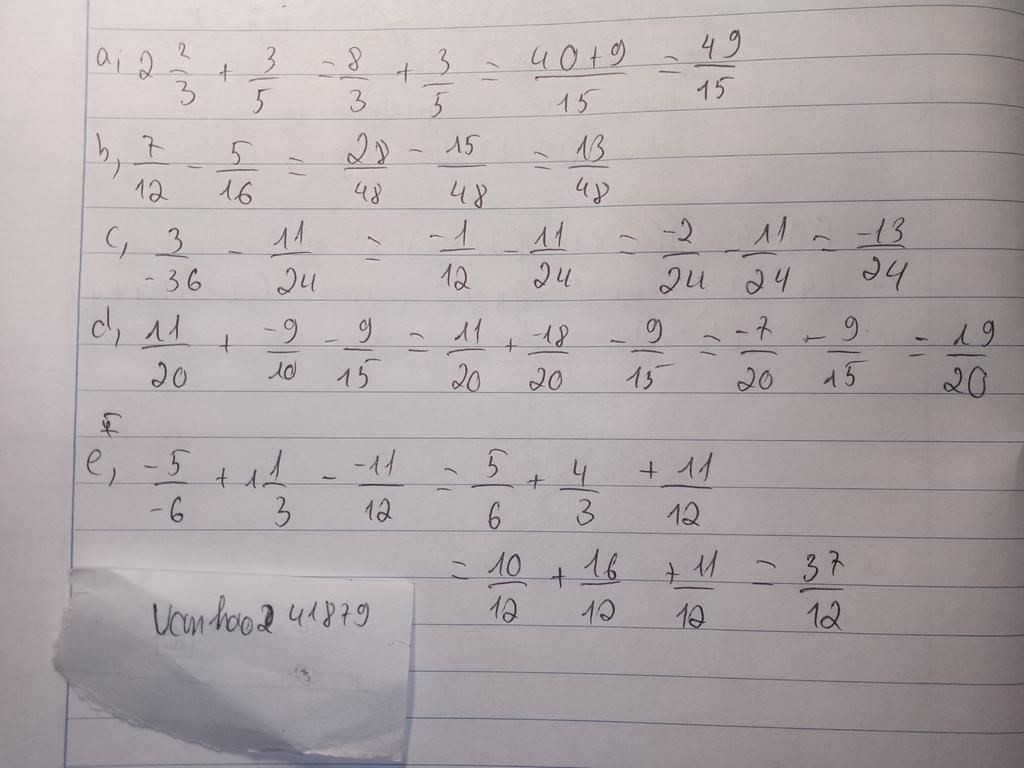 a, 2 2/3 + 3/5 = 8/3 + 3/5 = 40+9/15 = 49/15
b, 7/12 - 5/16 = 28/48 - 15/48 = 13/48
c, 3/-36 - 11/24 = -1/12 - 11/24 = -2/24 - 11/24 = -13/24
d, 11/20 + -9/10 - 9/15 = 11/20 + -18/20 - 9/15 = -7/20 - 9/15 = 19/20
e, -5/-6 + 1 1/3 - -11/12 = 5/6 + 4/3 + 11/12
= 10/12 + 16/12 + 11/12 = 37/12
41879